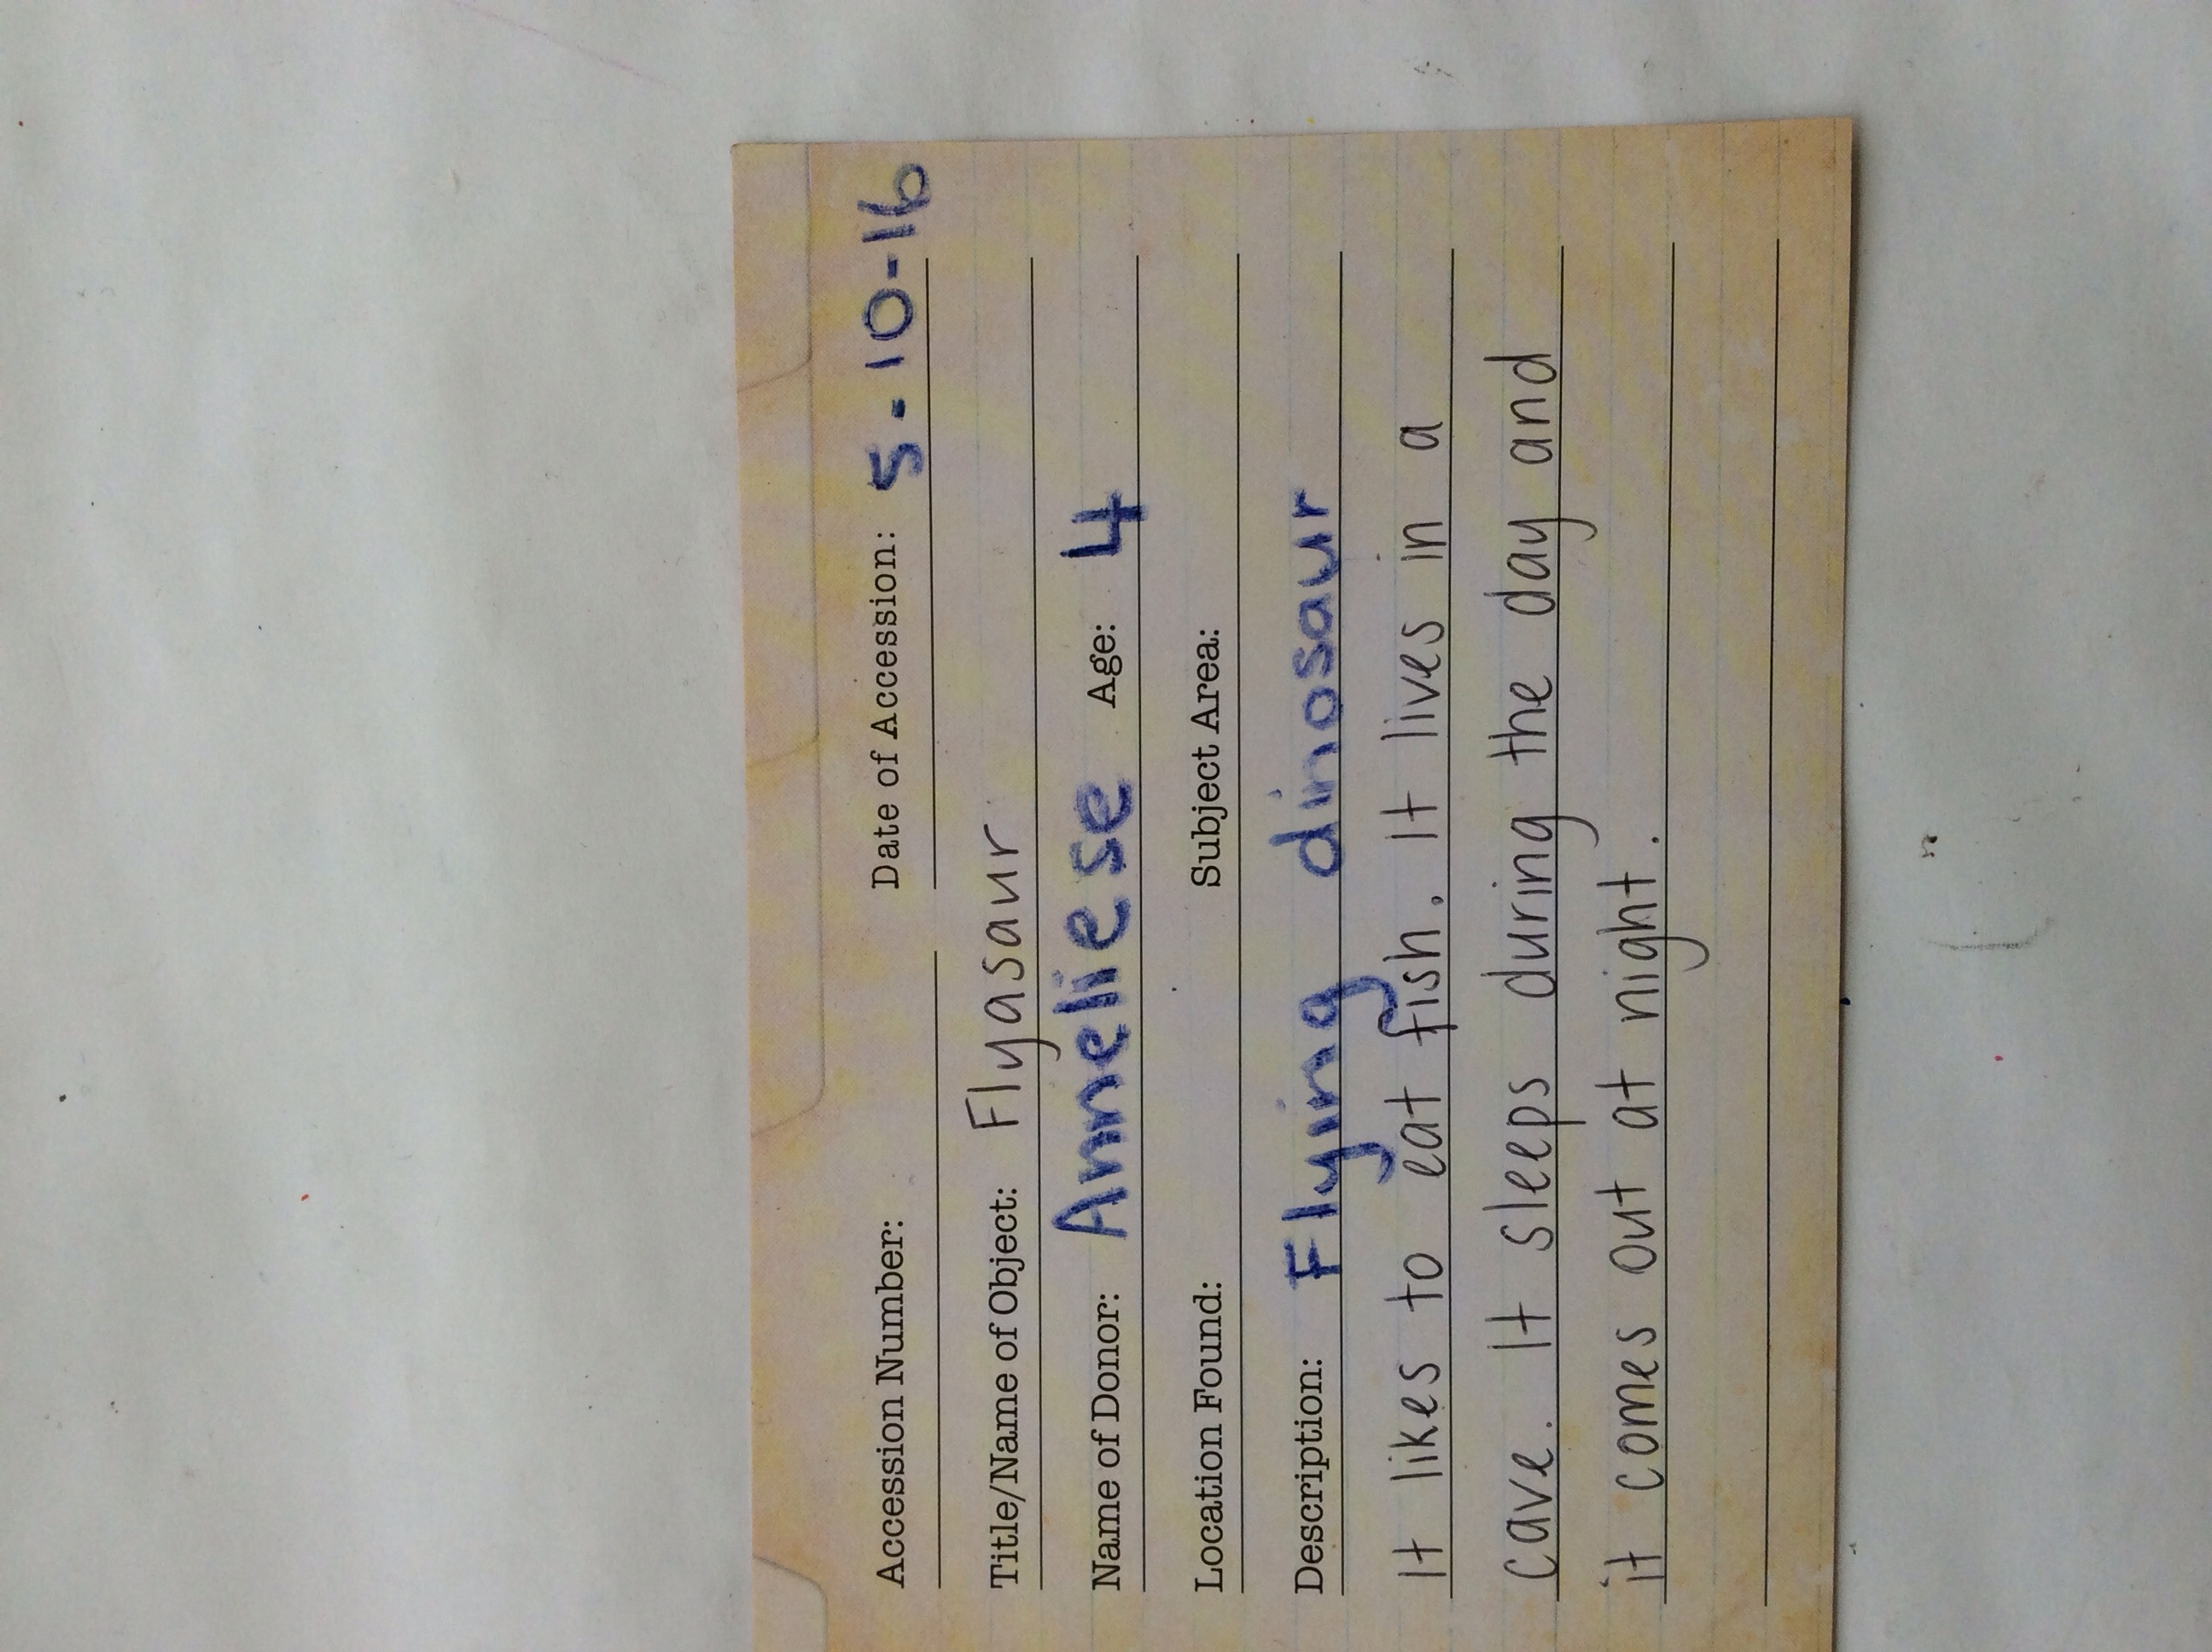 Accession Number: Date of Accession: 5-10-16
Title/Name of Object: Flyasaur
Name of Donor: Anneliese Age: 4
Location Found: Subject Area:
Description: Flying dinosaur
It likes to eat fish. It lives in a
cave. It sleeps during the day and
it comes out at night.